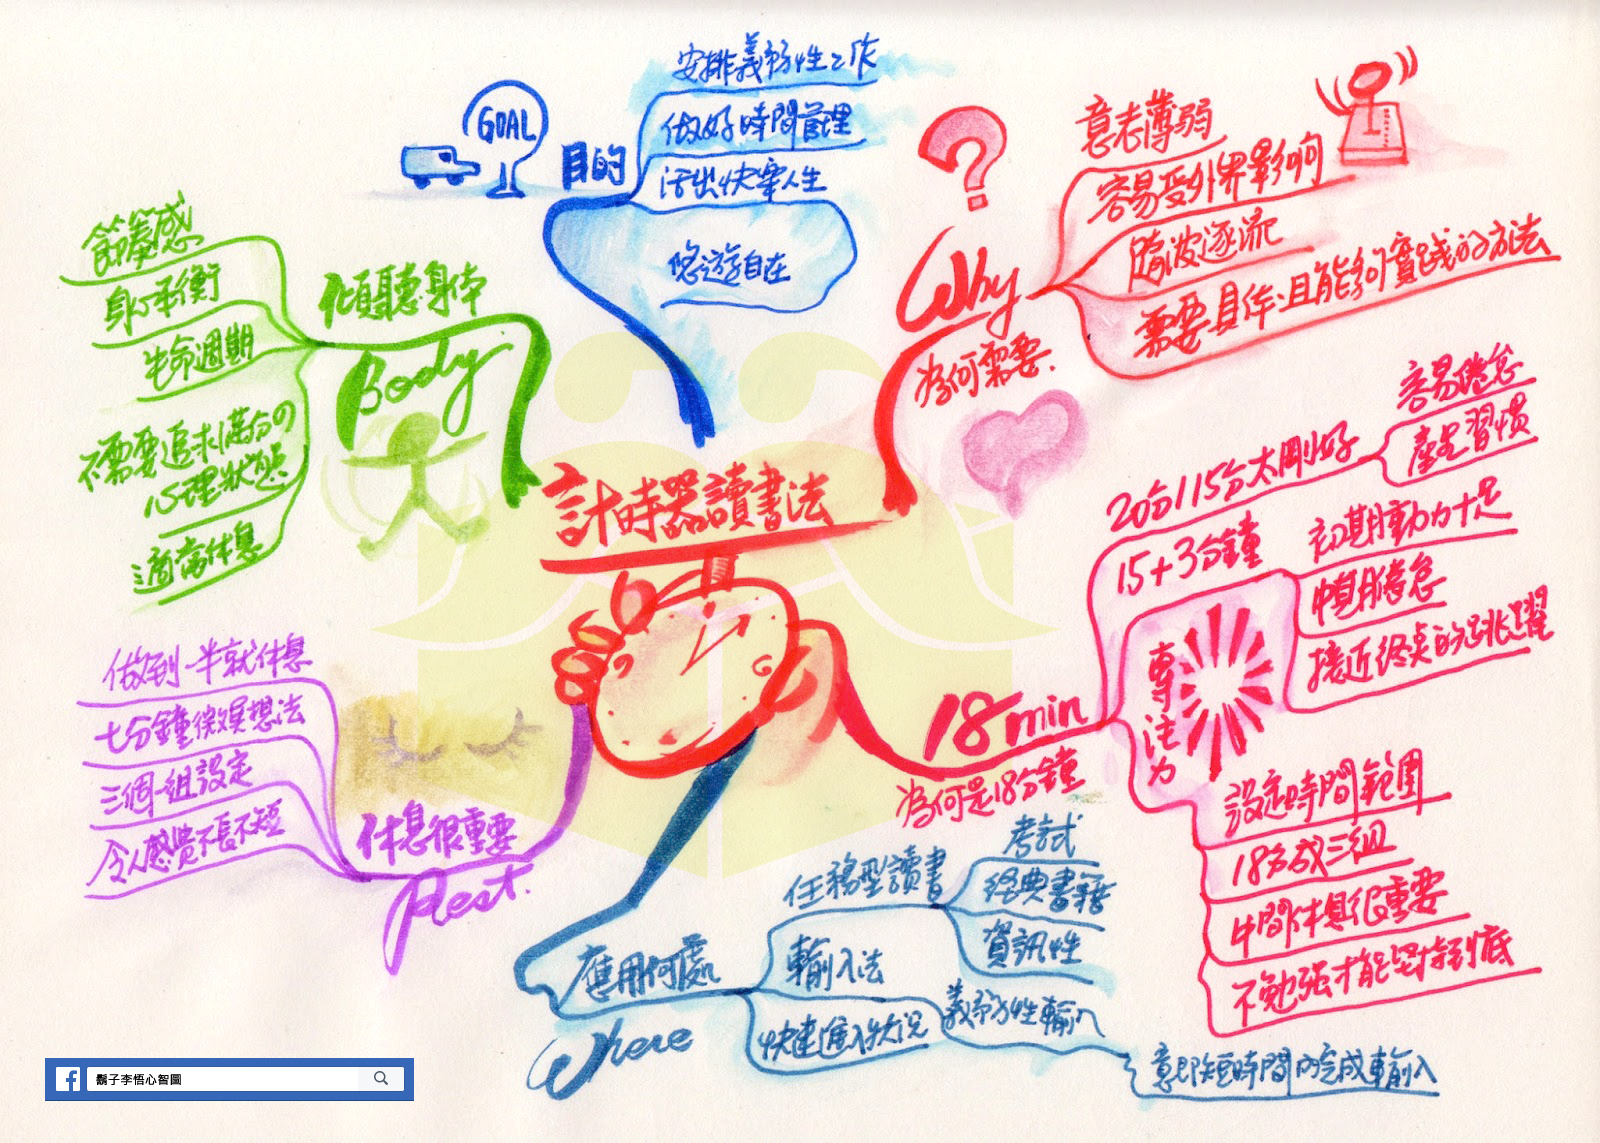 計時器讀書法
GOAL
目的
安排義務性工作
做好時間管理
活出快樂人生
悠遊自在
Why
為何需要.
意志薄弱
容易受外界影响
隨波逐流
需要具体且能夠實踐的方法
18min
為何是18分鐘
20分115分太剛好
容易倦怠
產生習慣
15+3分鐘
初期動力十足
中期倦怠
接近終桌的跳躍
專注力
設定時間範圍
18分成三組
中間休息很重要
不勉强才能堅持到底
應用何處
Where
任務型讀書
考試
經典書籍
資訊性
輸入法
快速進入狀況
義務性輸入
意即短時間內完成輸入
休息很重要
Rest.
做到一半就休息
七分鐘微
想法
三個一組設定
令人感覺不長不短
傾聽身体
Body
節奏感
身心平衡
生命週期
不需要追求滿分の
心理狀態
適當休息
鬍子李悟心智圖